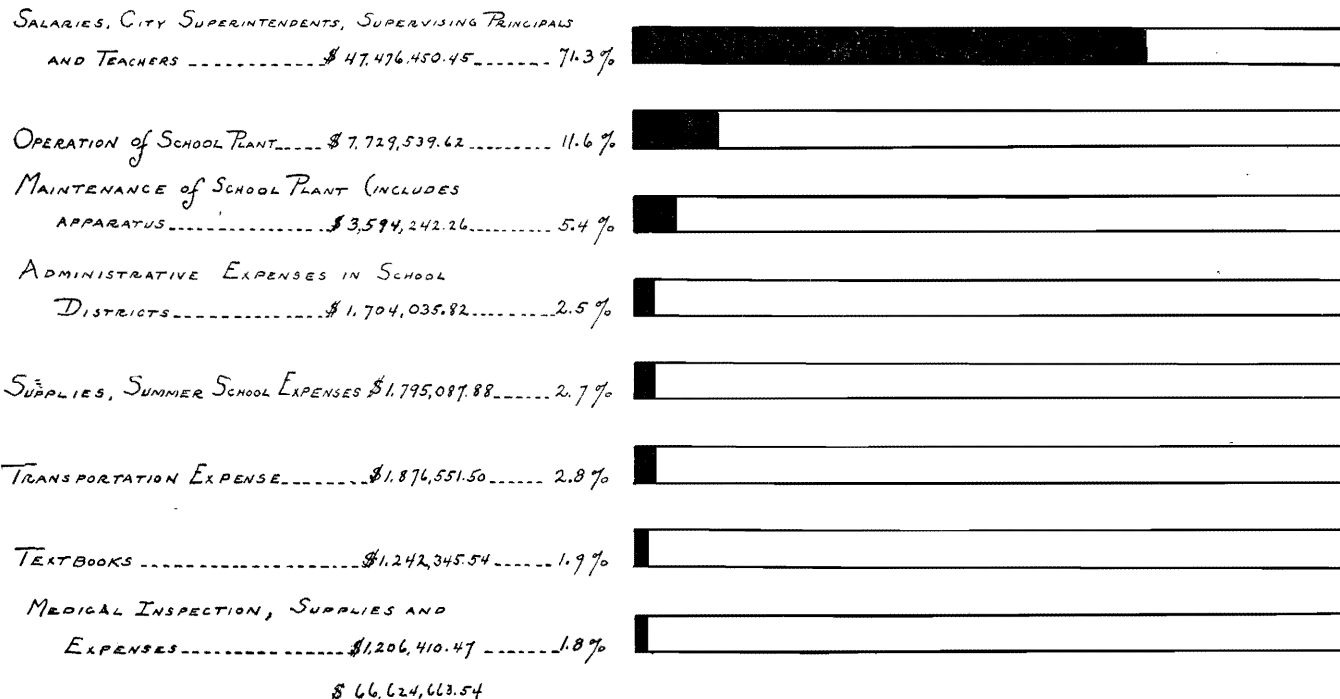 SALARIES, CITY SUPERINTENDENTS, SUPERVISING PRINCIPALS
AND TEACHERS ------------ $ 47,476,450.45 ------- 71.3 %
OPERATION of SCHOOL PLANT ----- $ 7,729,539.62 --------- 11.6 %
MAINTENANCE of SCHOOL PLANT (INCLUDES
APPARATUS ---------------- $ 3,594,242.26 -------- 5.4 %
ADMINISTRATIVE EXPENSES IN SCHOOL
DISTRICTS --------------- $ 1,704,035.82 -------- 2.5 %
SUPPLIES, SUMMER SCHOOL EXPENSES $1,795,087.88 ------ 2.7 %
TRANSPORTATION EXPENSE -------- $1,876,551.50 ------ 2.8 %
TEXTBOOKS ---------------------- $1,242,345.54 ------ 1.9 %
MEDICAL INSPECTION, SUPPLIES AND
EXPENSES ----------------- $1,206,410.47 ------- 1.8 %
$ 66,624,663.54